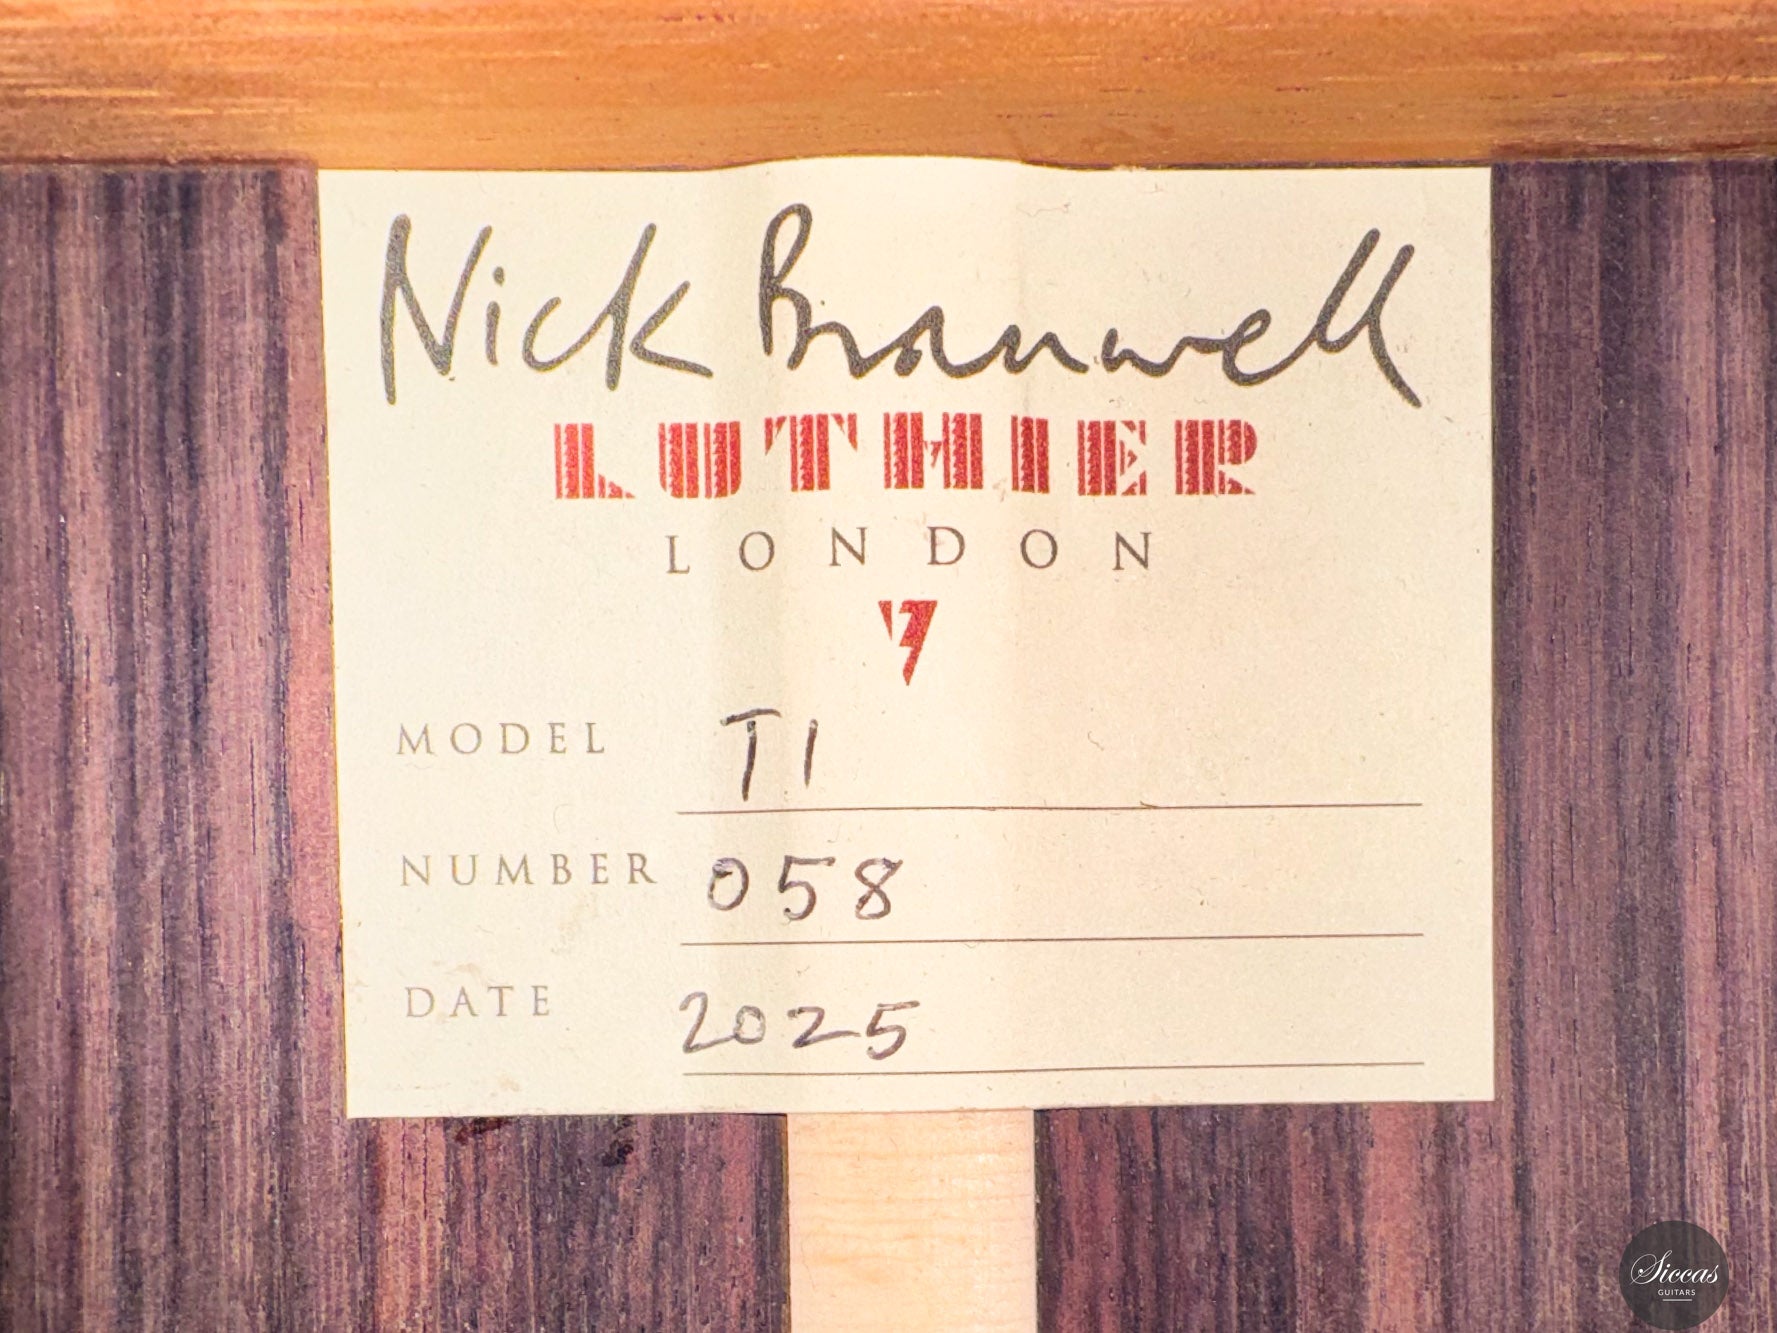 Nick Branwell
LUTHIER
LONDON
MODEL T1
NUMBER 058
DATE 2025
Siccas
GUITARS